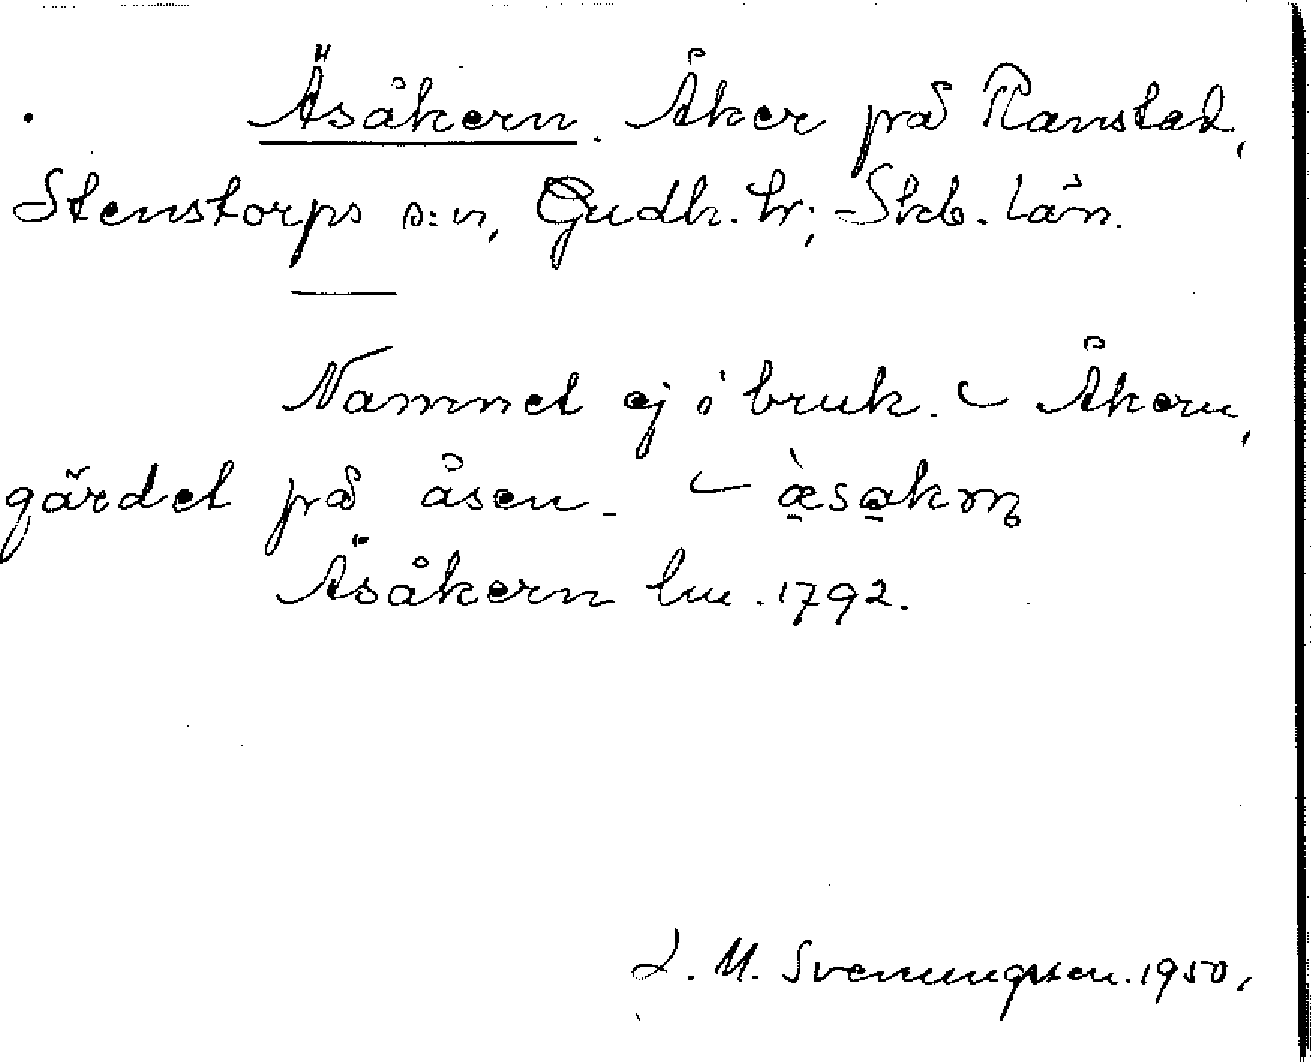 Äsåkern. Åker på Ranstad,
Stenstorps s:n, Gudh. hr; Skb. län.
Namnet ej i bruk. – Åkern,
gärdet på åsen. – æ̀sakrn̥
Äsåkern lm. 1792.
L. M. Svenungsson. 1950.